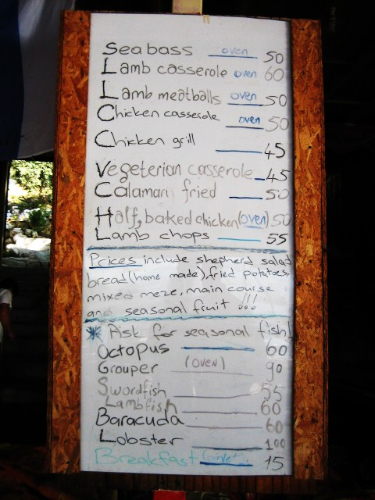 Sea bass oven 50
Lamb casserole oven 60
Lamb meatballs oven 50
Chicken casserole oven 50
Chicken grill 45
Vegeterian casserole 45
Calamari fried 50
Half, baked chicken (oven) 50
Lamb chops 55
Prices include shepherd salad
bread (home made), fried potatoes
mixed meze, main course
and seasonal fruit !!!
* Ask for seasonal fish!
Octopus 60
Grouper (oven) 90
Swordfish 55
Lambfish 60
Baracuda 60
Lobster 100
Breakfast 15